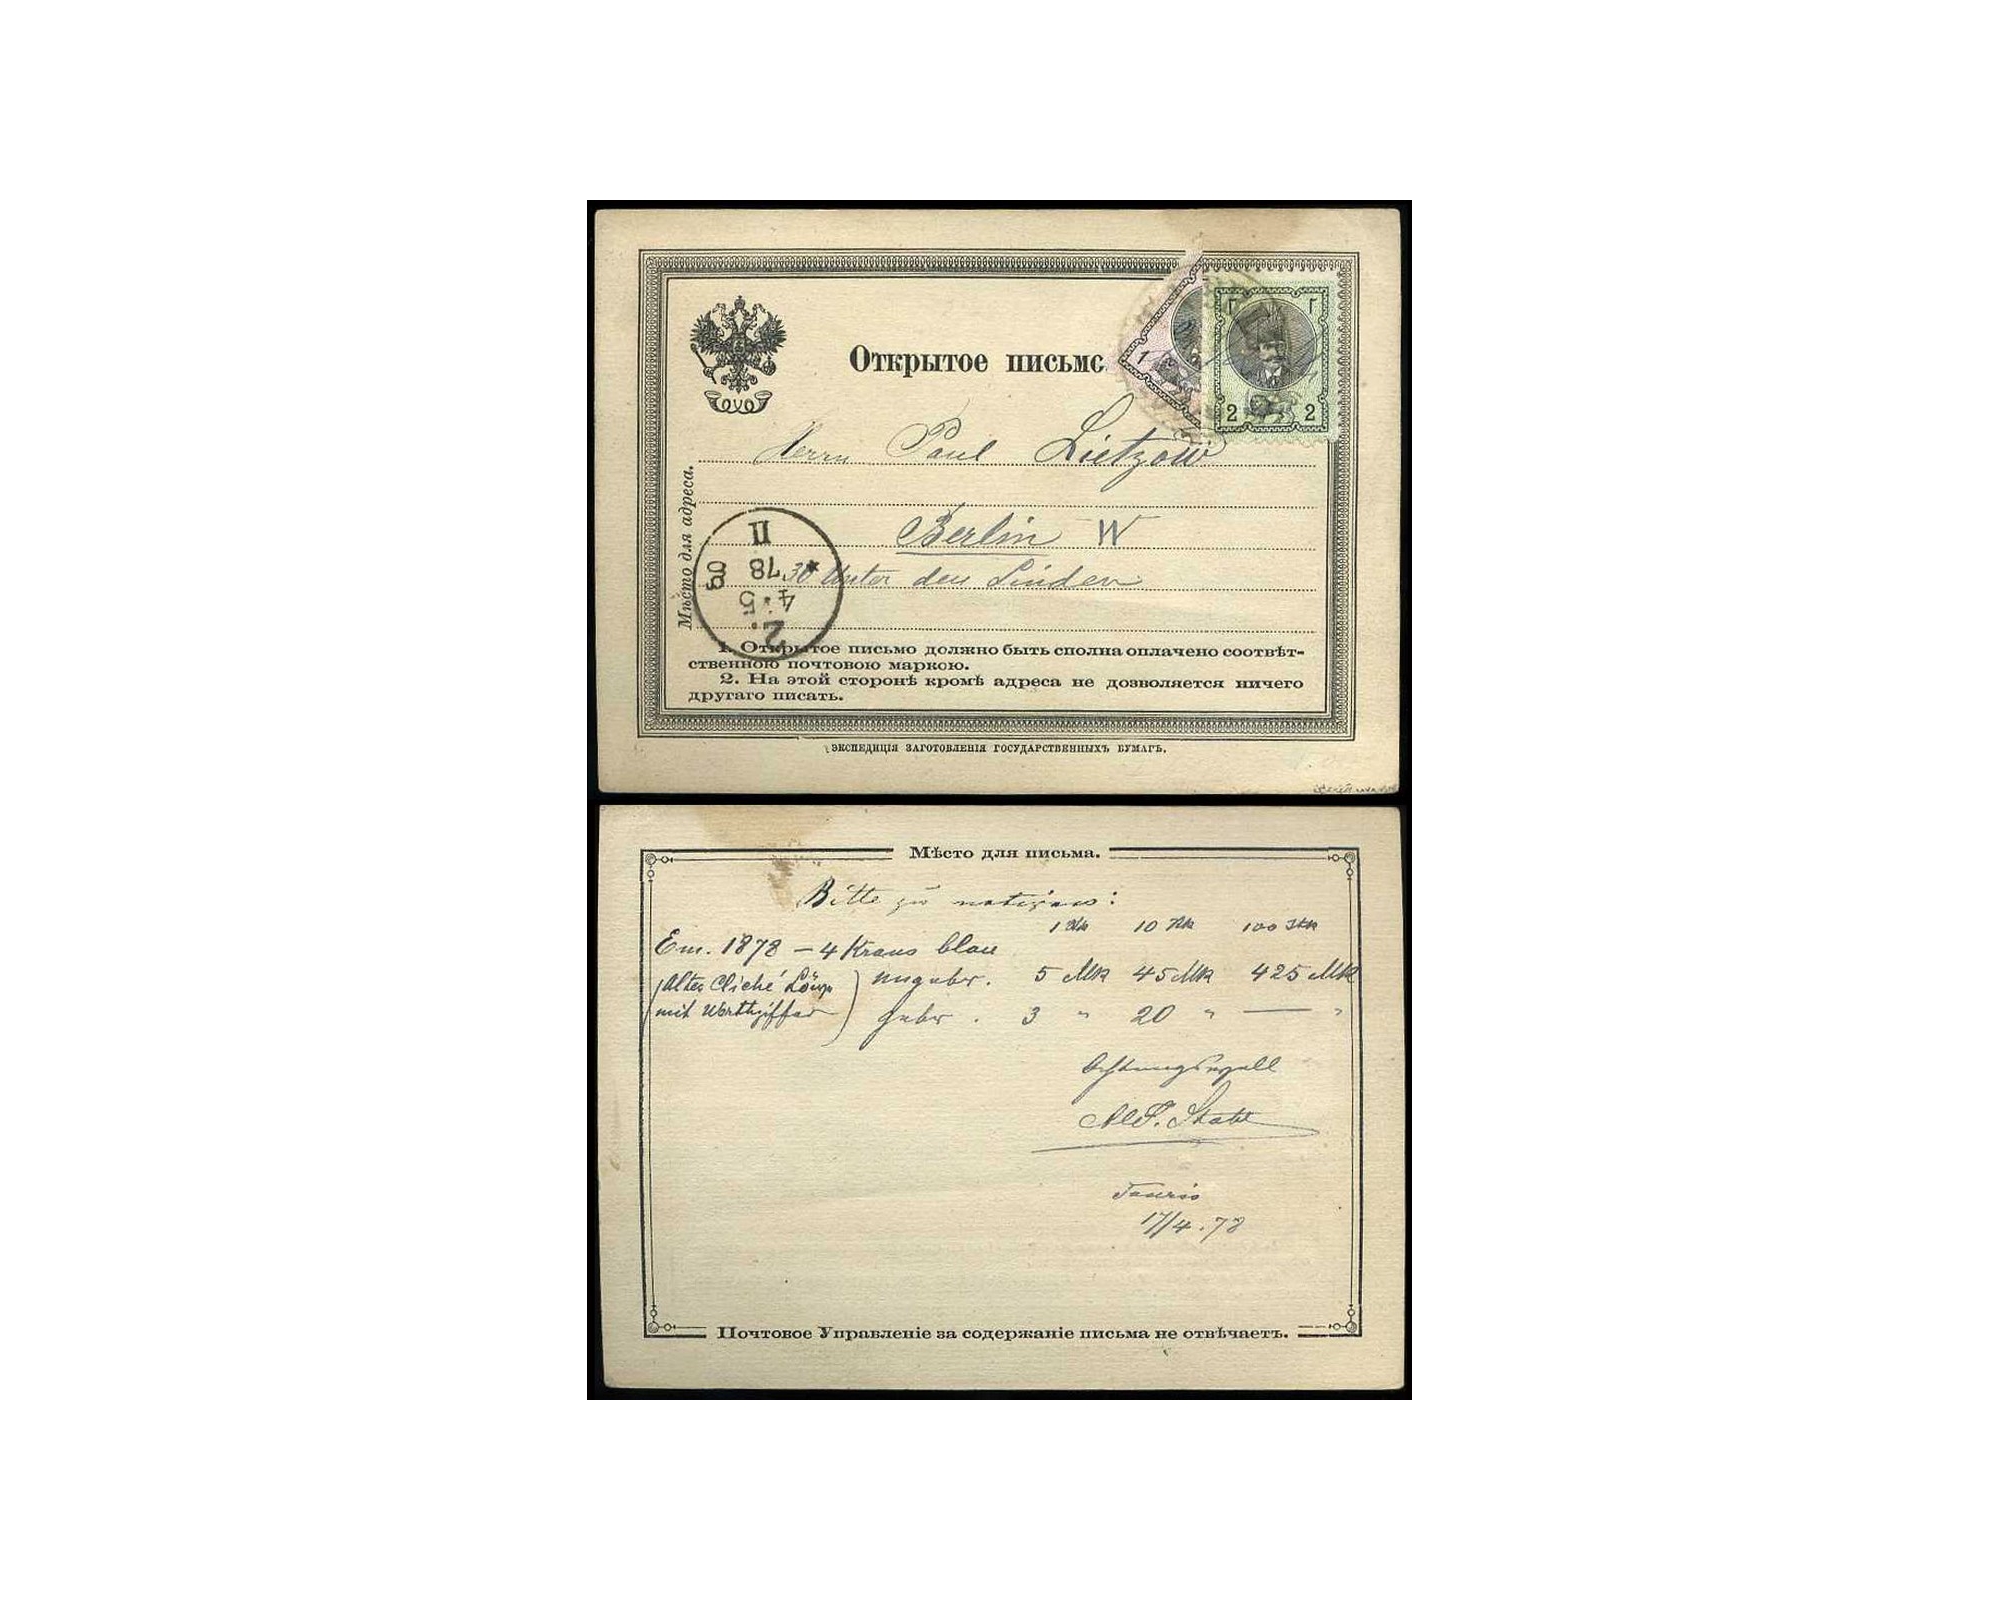 Открытое письмо
1
Г Г
2 2
Herrn Paul Lietzow
Berlin W
30 Unter den Linden
Мѣсто для адреса.
2.
4 5
78
II
1. Открытое письмо должно быть сполна оплачено соотвѣт-
ственною почтовою маркою.
2. На этой сторонѣ кромѣ адреса не дозволяется ничего
другаго писать.
ЭКСПЕДИЦІЯ ЗАГОТОВЛЕНІЯ ГОСУДАРСТВЕННЫХЪ БУМАГЪ.
Мѣсто для письма.
Bitte zu notiren:
1 Stk 10 Stk 100 Stk
Em. 1878 – 4 Krans blau
(Altes Cliché Löwe) ungebr. 5 Mk 45 Mk 425 Mk
(mit Werthziffer) gebr. 3 " 20 " — "
Achtungsvoll
Alf. Stahl
Tauris
17/4.78
Почтовое Управленіе за содержаніе письма не отвѣчаетъ.